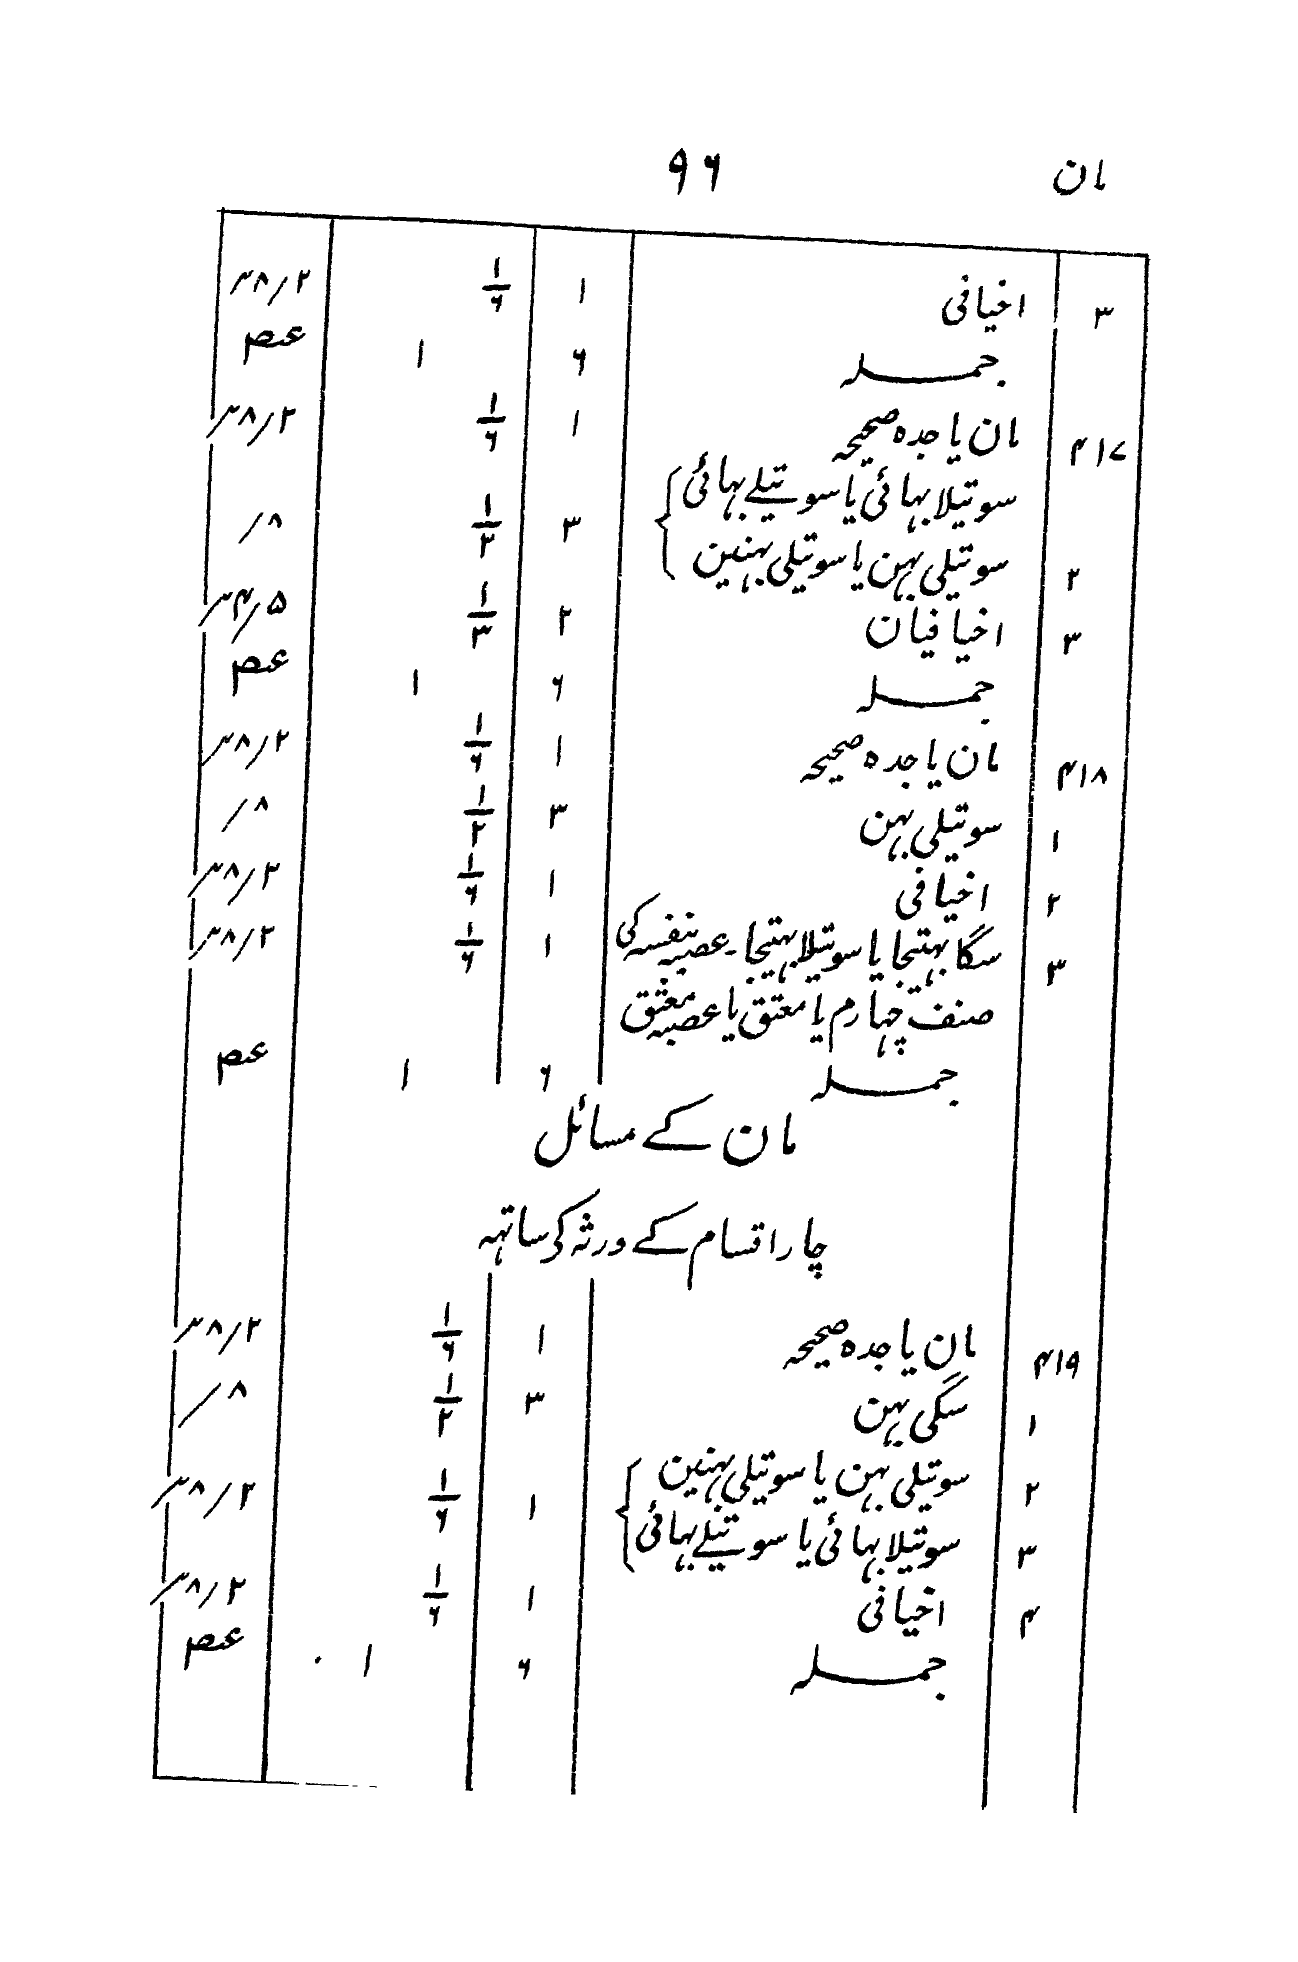 مان ۹۶
۳ اخیافی ۱ ۱/۶ ۲/۸/۳
جملہ ۶ ۱ عہ
۴۱۷ مان یا جدہ صحیحہ ۱ ۱/۶ ۲/۸/۳
سوتیلا بہائی یا سوتیلے بہائی
۲ سوتیلی بہن یا سوتیلی بہنین ۳ ۱/۲ ۸/
۳ اخیافیان ۲ ۱/۳ ۵/۴/۳
جملہ ۶ ۱ عہ
۴۱۸ مان یا جدہ صحیحہ ۱ ۱/۶ ۲/۸/۳
۱ سوتیلی بہن ۳ ۱/۲ ۸/
۲ اخیافی ۱ ۱/۶ ۲/۸/۳
۳ سگا بہتیجا یا سوتیلا بہتیجا۔ عصبہ بنفسہ کی ۱ ۱/۶ ۲/۸/۳
صنف چہارم یا معتق یا عصبہ معتق
جملہ ۶ ۱ عہ
مان کے مسائل
چار اقسام کے ورثہ کی ساتہہ
۴۱۹ مان یا جدہ صحیحہ ۱ ۱/۶ ۲/۸/۳
۱ سگی بہن ۳ ۱/۲ ۸/
۲ سوتیلی بہن یا سوتیلی بہنین ۱ ۱/۶ ۲/۸/۳
۳ سوتیلا بہائی یا سوتیلے بہائی
۴ اخیافی ۱ ۱/۶ ۲/۸/۳
جملہ ۶ ۱ عہ